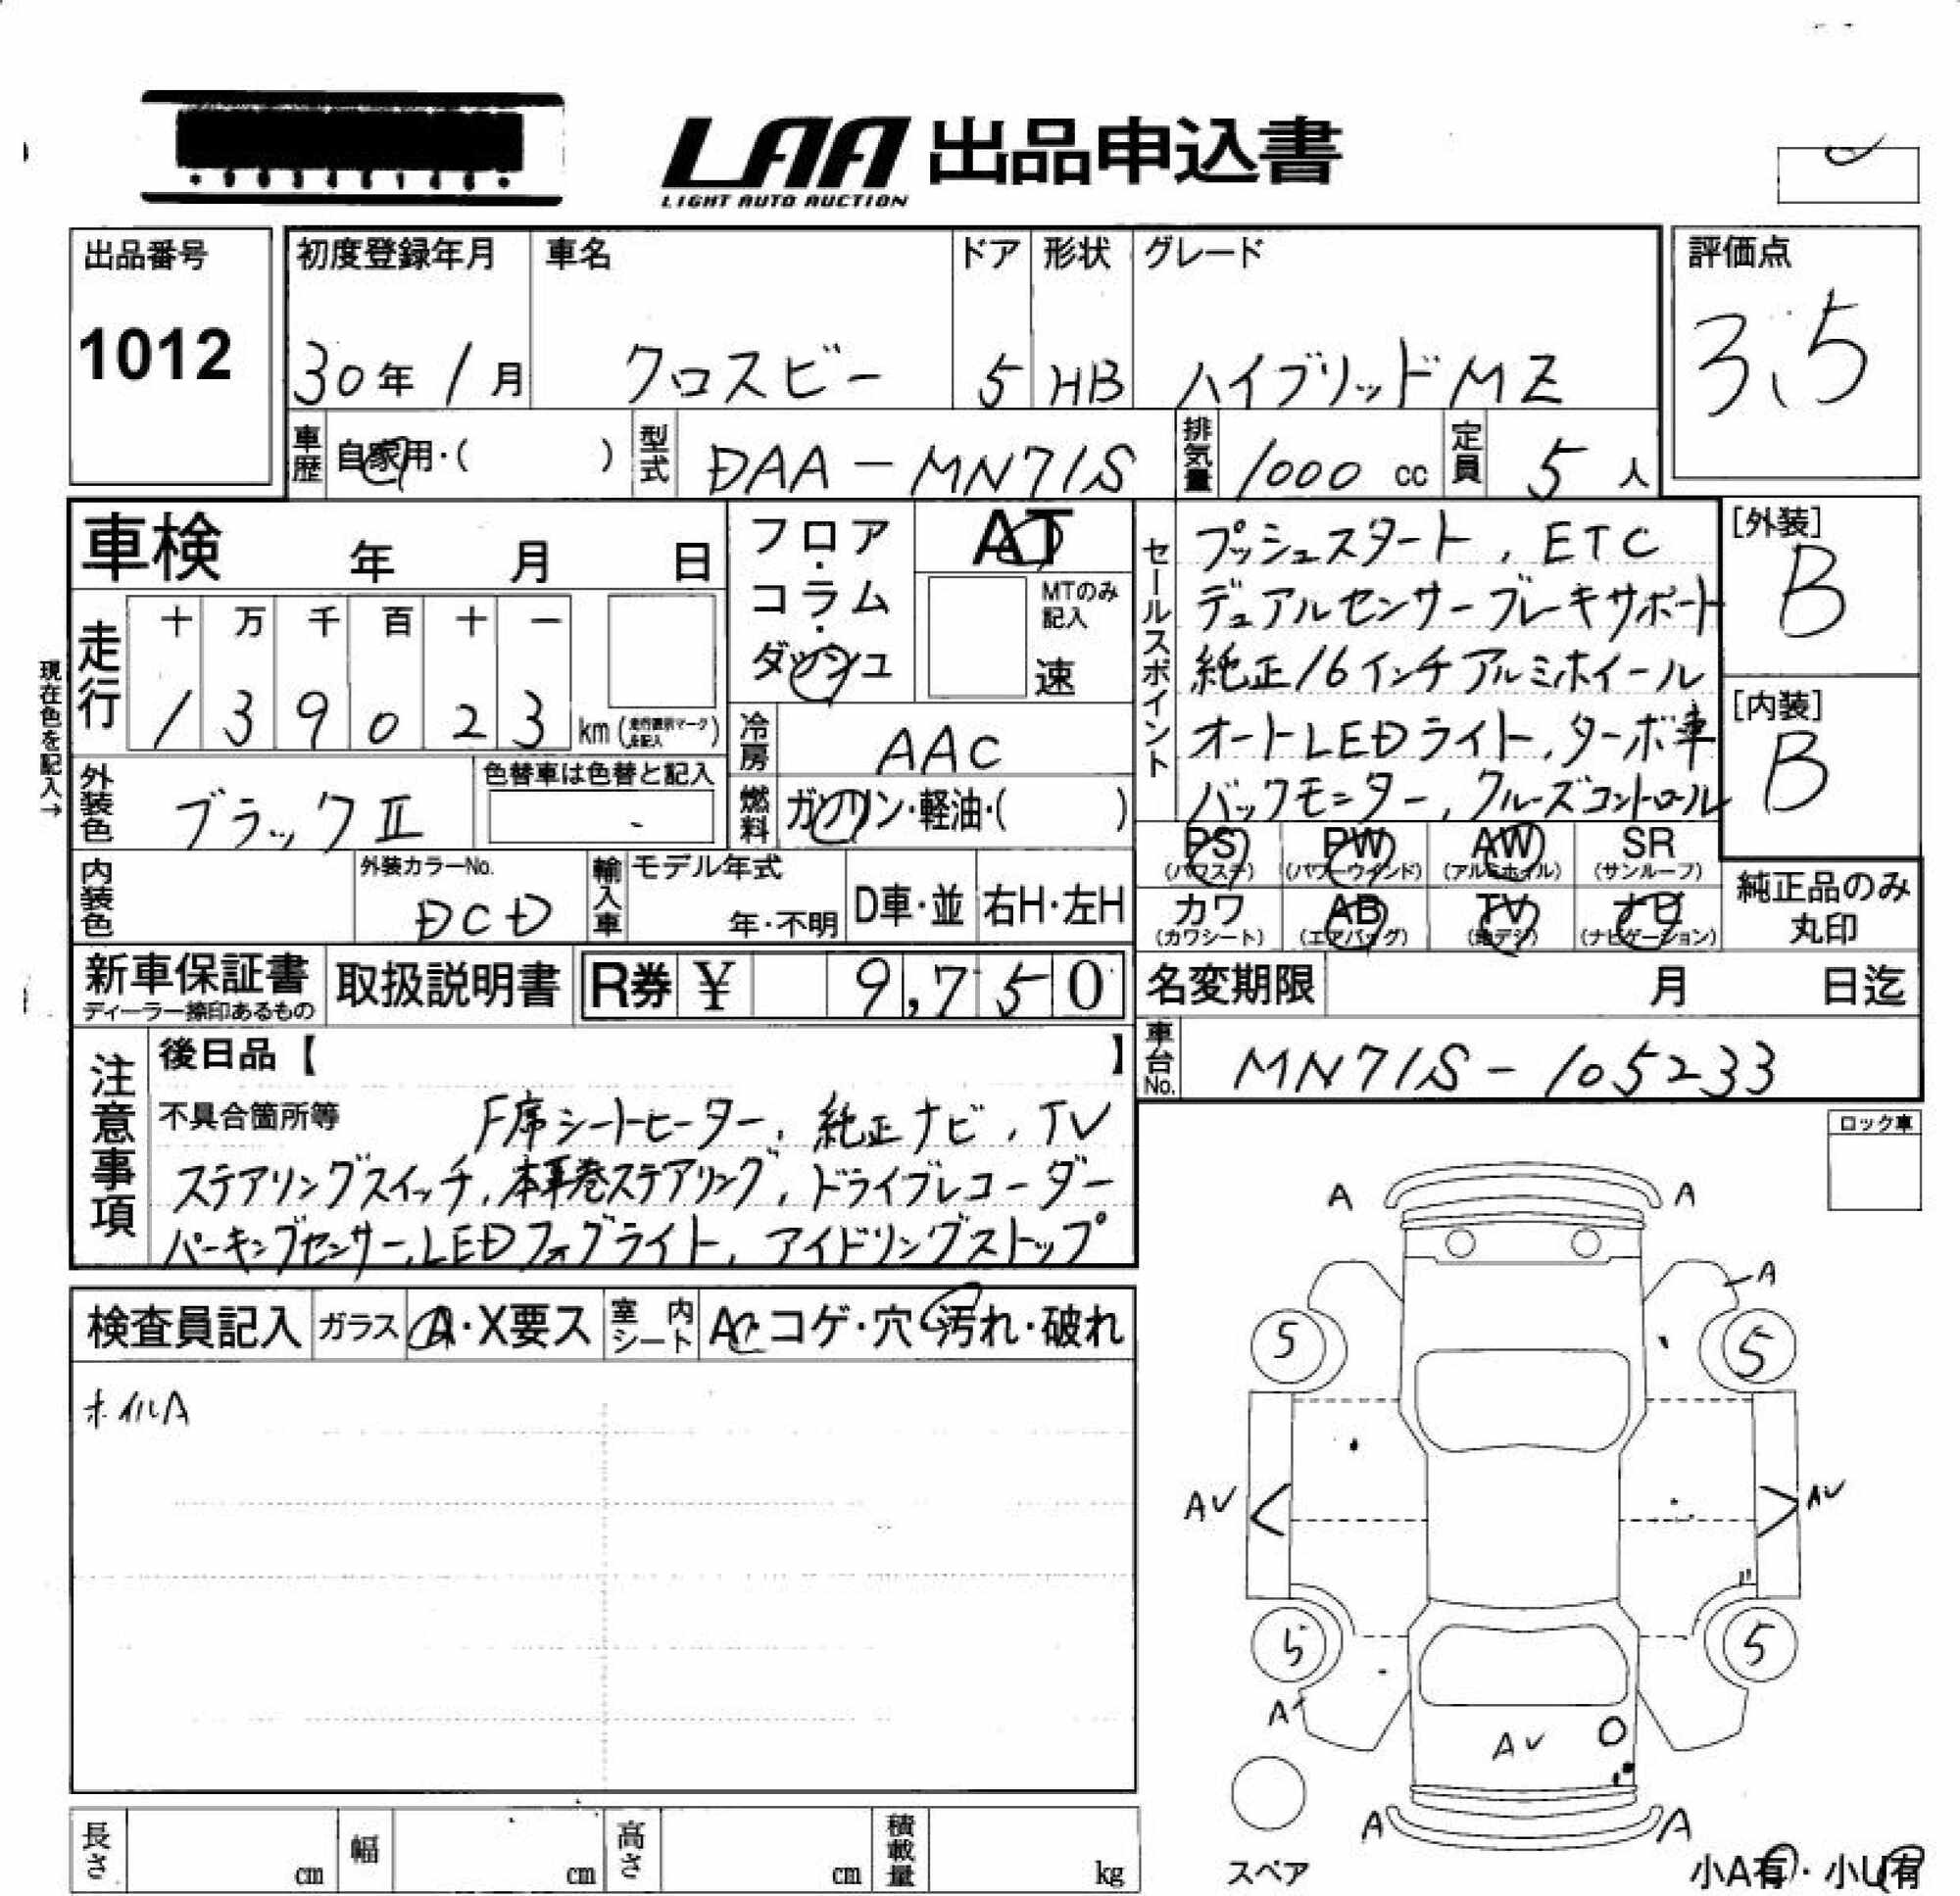 LAA 出品申込書
LIGHT AUTO AUCTION
出品番号
1012
初度登録年月
30年 1月
車名
クロスビー
ドア
5
形状
HB
グレード
ハイブリッドMZ
評価点
3.5
車歴 自家用・( )
型式 DAA-MN71S
排気量 1000 cc
定員 5 人
車検 年 月 日
フロア・コラム・ダッシュ
AT
MTのみ記入
速
セールスポイント
プッシュスタート, ETC
デュアルセンサーブレーキサポート
純正16インチアルミホイール
オートLEDライト, ターボ車
バックモニター, クルーズコントロール
[外装]
B
[内装]
B
現在色を記入→
走行
十 万 千 百 十 一
1 3 9 0 2 3 km
冷房 AAC
外装色 ブラックⅡ
色替車は色替と記入
-
燃料 ガソリン・軽油・( )
PS (パワステ)
PW (パワーウインド)
AW (アルミホイル)
SR (サンルーフ)
内装色
外装カラーNo.
DCD
輸入車
モデル年式
年・不明
D車・並
右H・左H
カワ (カワシート)
AB (エアバッグ)
TV (地デジ)
ナビ (ナビゲーション)
純正品のみ
丸印
新車保証書
ディーラー捺印あるもの
取扱説明書
R券 ¥ 9,750
名変期限 月 日迄
車台No. MN71S-105233
注意事項
後日品【 】
不具合箇所等 F席シートヒーター, 純正ナビ, TV
ステアリングスイッチ, 本革巻ステアリング, ドライブレコーダー
パーキングセンサー, LEDフォグライト, アイドリングストップ
ロック車
検査員記入
ガラス A・X要ス
室内シート AC コゲ・穴・汚れ・破れ
ホイルA
A A
A
5 5
AV AV
5 5
A
AV
A A
スペア
小A有・小U有
長さ cm
幅 cm
高さ cm
積載量 kg